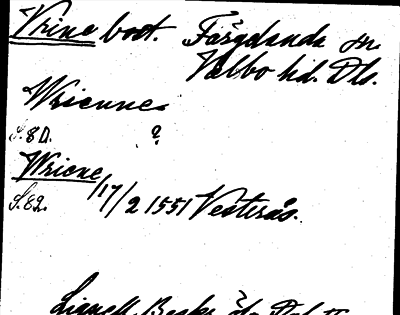 Vrine bost. Färgelanda sn.
Valbo hd. Dls.
Wriennes
S. 8 D. ?
Wriene
S. 82. 17/2 1551 Vesterås.
Lignell, Beskr.